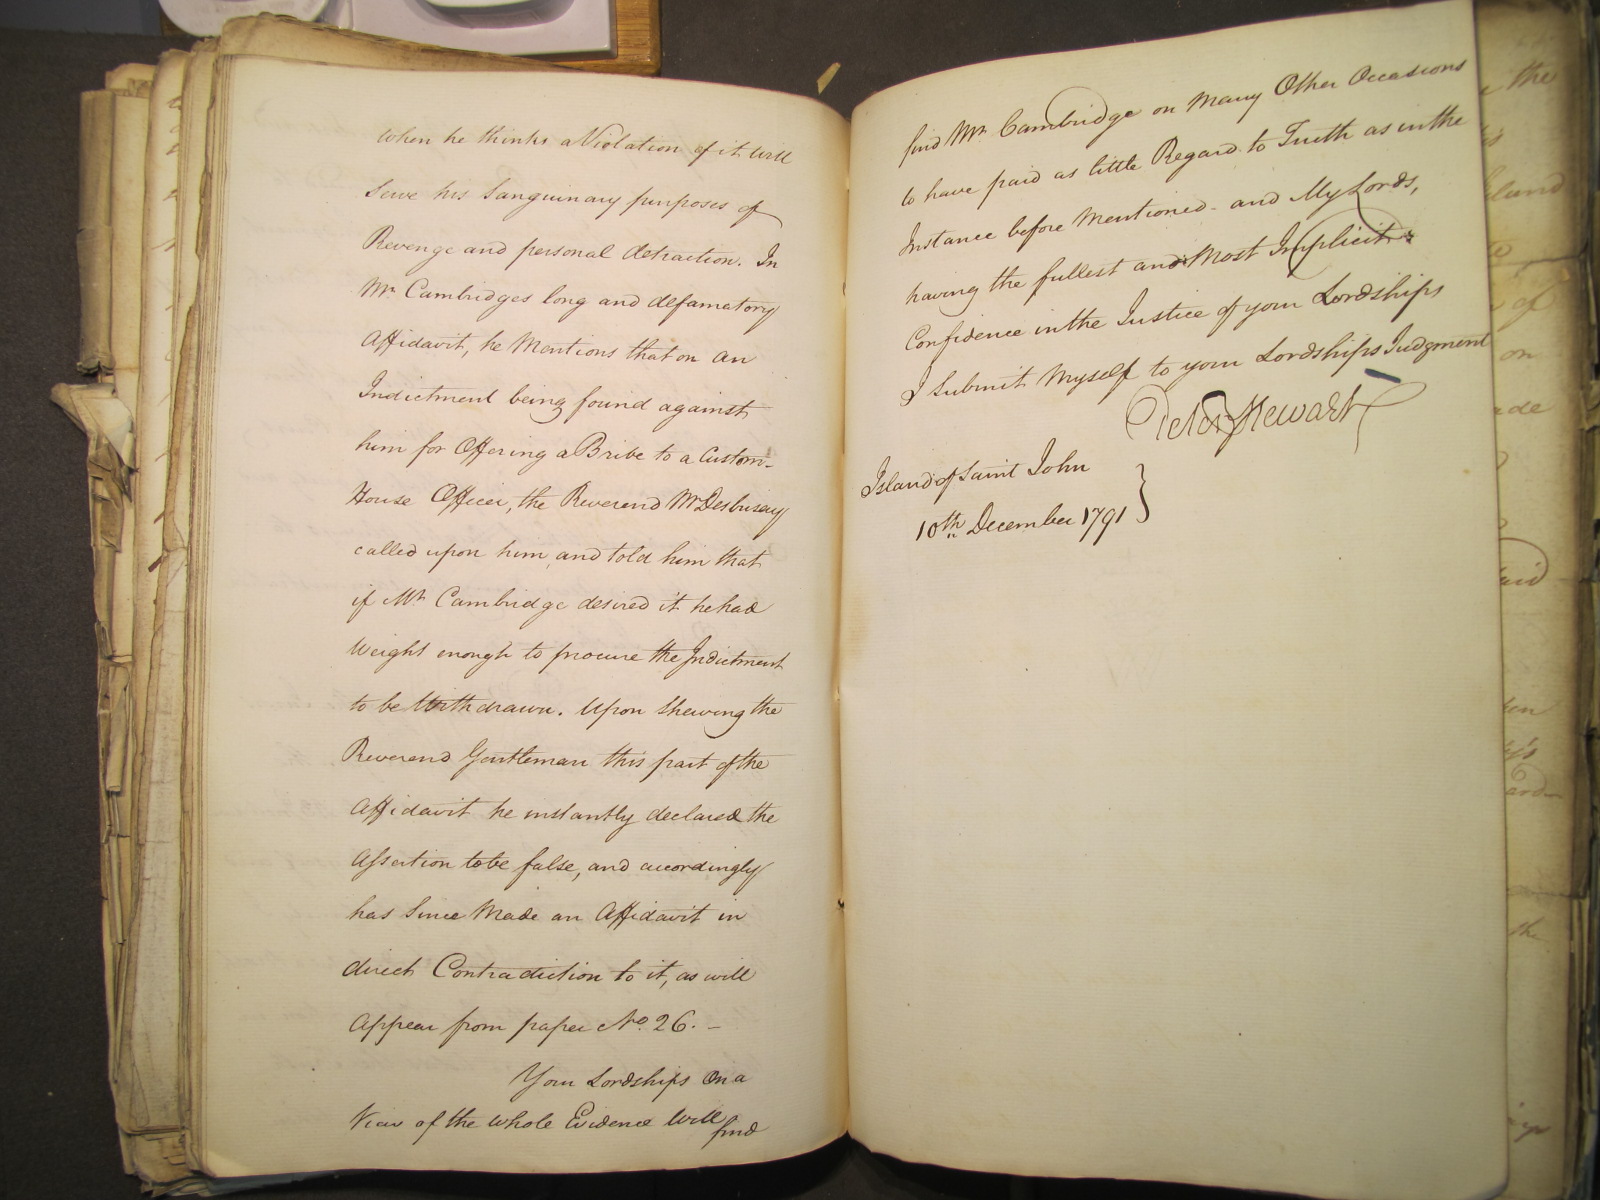 when he thinks a Violation of it will
Serve his Sanguinary purposes of
Revenge and personal detraction. In
Mr. Cambridges long and defamatory
Affidavit, he Mentions that on an
Indictment being found against
him for Offering a Bribe to a Custom-
House Officer, the Reverend Mr Desbrisay
called upon him, and told him that
if Mr. Cambridge desired it he had
Weight enough to procure the Indictment
to be Withdrawn. Upon Shewing the
Reverend Gentleman this part of the
Affidavit he instantly declared the
Assertion to be false, and accordingly
has Since Made an Affidavit in
direct Contradiction to it, as will
Appear from paper No. 26. -
Your Lordships On a
View of the whole Evidence Will
find
find Mr. Cambridge on Many Other Occasions
to have paid as little Regard to Truth as in the
Instance before Mentioned - and My Lords,
having the fullest and Most Implicit
Confidence in the Justice of your Lordships
I Submit Myself to your Lordships Judgment
Peter Stewart
Island of Saint John
10th December 1791